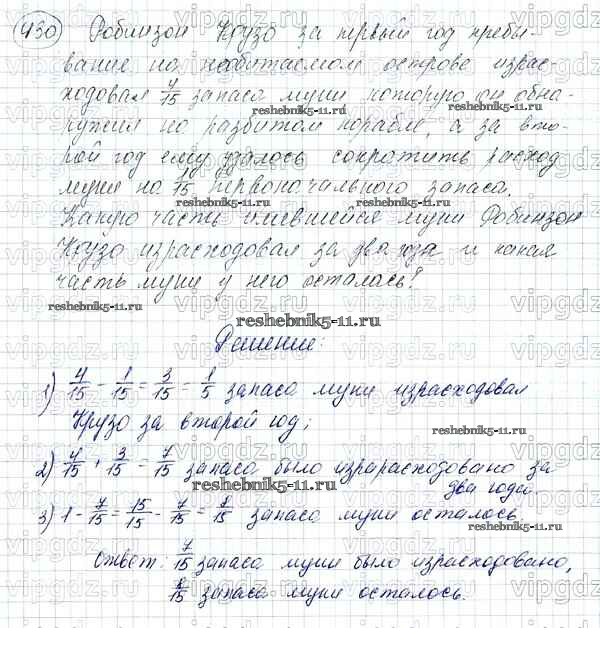 430 Робинзон Крузо за первый год пребы-
вание на необитаемом острове израс-
ходовал 4/15 запаса муки которую он обна-
ружил на разбитом корабле, а за вто-
рой год ему удалось сократить расход
муки на 1/15 первоначального запаса.
Какую часть имевшейся муки Робинзон
Крузо израсходовал за два года и какая
часть муки у него осталось?
Решение:
1) 4/15 - 1/15 = 3/15 = 1/5 запаса муки израсходовал
Крузо за второй год;
2) 4/15 + 3/15 = 7/15 запаса было израрасходовано за
два года.
3) 1 - 7/15 = 15/15 - 7/15 = 8/15 запаса муки осталось
Ответ: 7/15 запаса муки было израсходовано,
8/15 запаса муки осталось.
reshebnik5-11.ru
vipgdz.ru